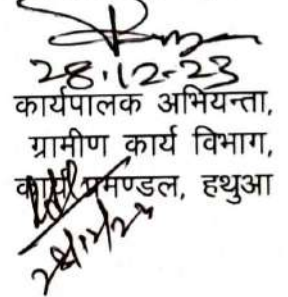 28.12.23
कार्यपालक अभियन्ता,
ग्रामीण कार्य विभाग,
कार्य प्रमण्डल, हथुआ
28/12/23